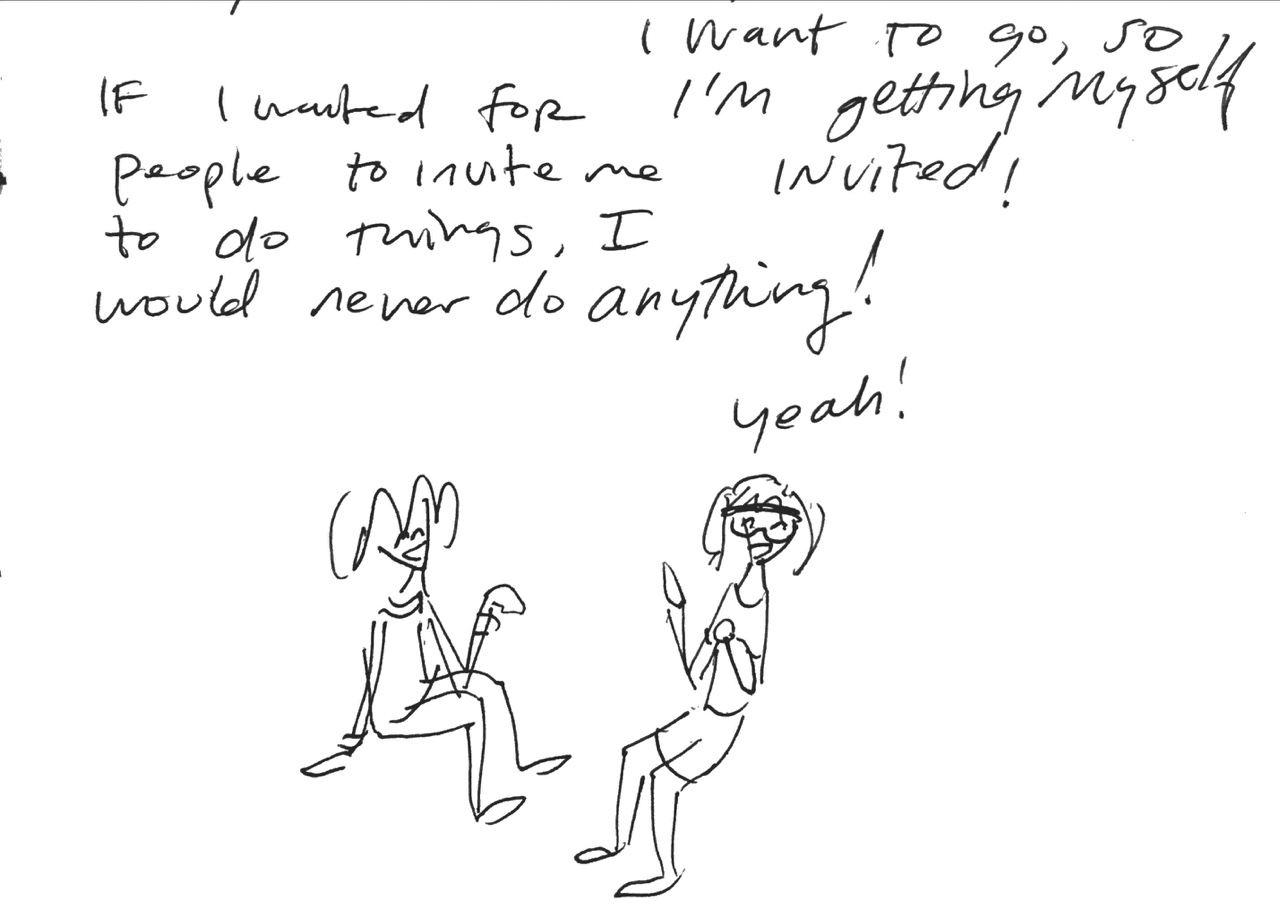 IF I waited for
people to invite me
to do things, I
would never do anything!
I want to go, so
I'm getting myself
invited!
yeah!